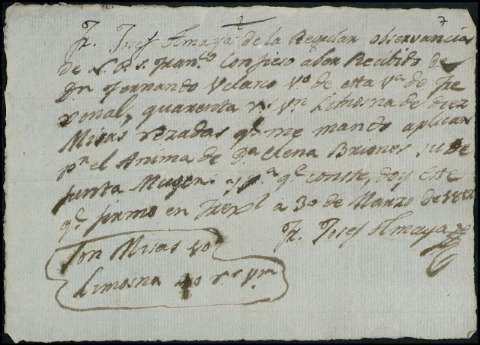 Fr. Josef Amaya de la Regular observancia
de N. P. S. Franco. Confieso aber Recibido de
Dn. Fernando Velazo Vo. de esta Va. de Fre
xenal, quarenta rs. vn. Limosna de diez
Misas rezadas qe. me mando aplicar
pr. el Anima de Da. Elena Briones, su De
funta Muger: y pa. qe. conste, doy este
qe. firmo en Frexl. a 30 de Marzo de
Fr. Josef Amaya
Son Misas 10
Limosna 40 rs. vn.